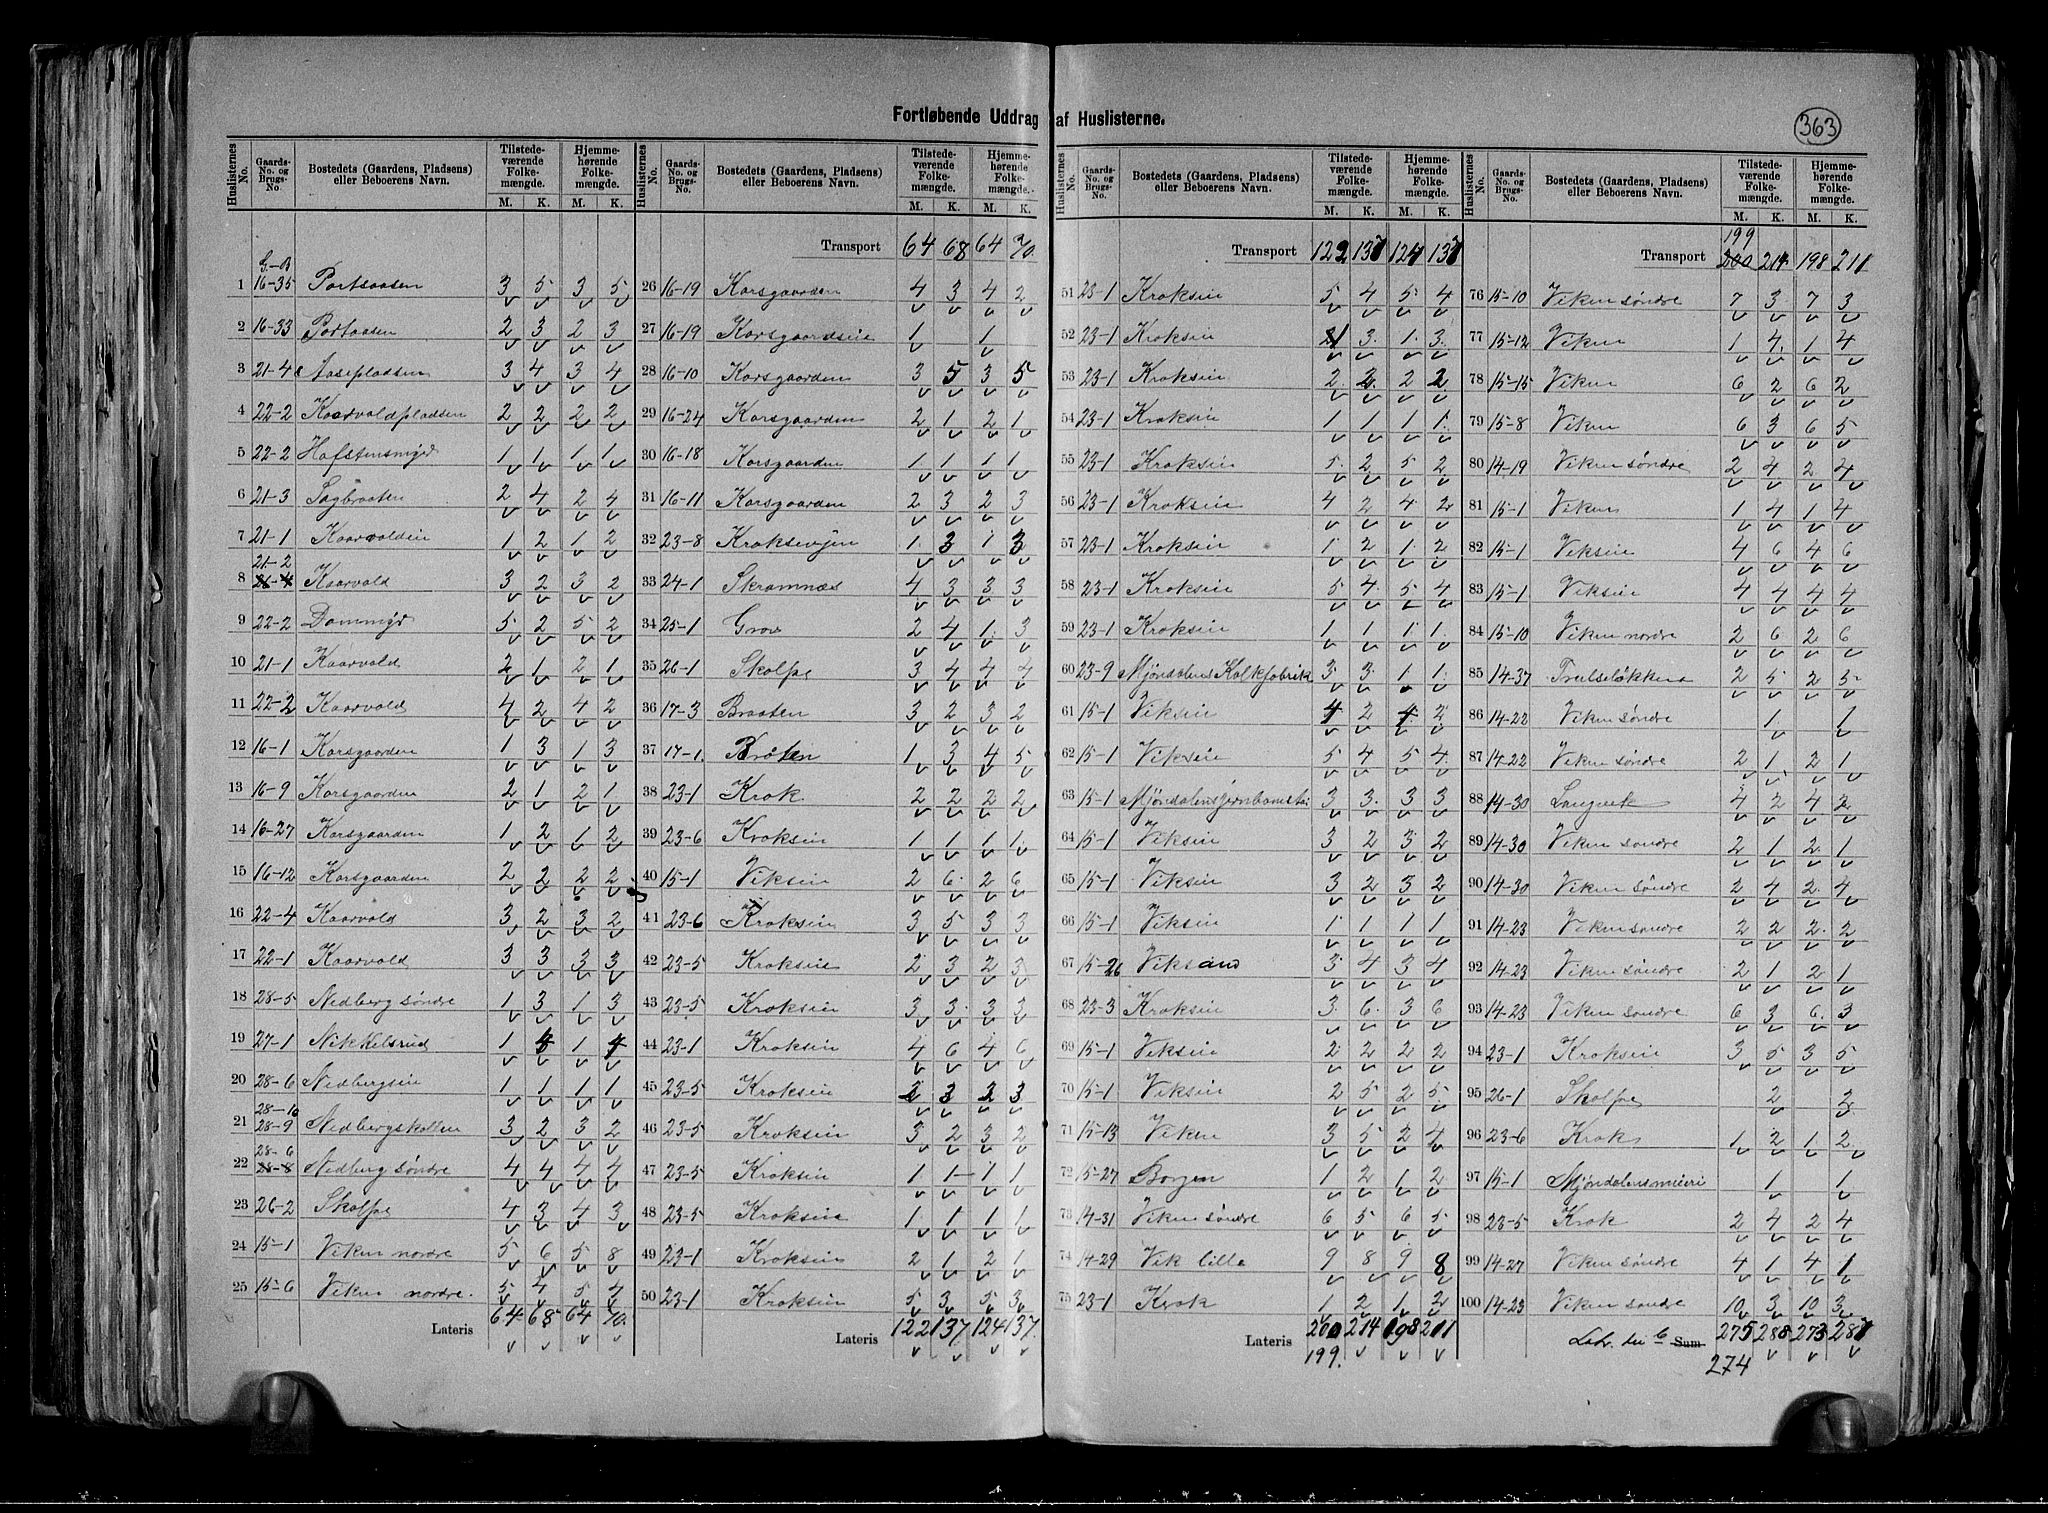 Fortløbende Uddrag af Huslisterne.
363
Huslisternes No. | Gaards-No. og Brugs-No. | Bostedets (Gaardens, Pladsens) eller Beboerens Navn. | Tilstedeværende Folkemængde. M. K. | Hjemmehørende Folkemængde. M. K.
G.-B
1 16-35 Portaasen 3 5 3 5
2 16-33 Portaasen 2 3 2 3
3 21-4 Aasepladsen 3 4 3 4
4 22-2 Kaarvoldpladsen 2 2 2 2
5 22-2 Hofstensmyr 1 1 1 1
6 21-3 Sagbraaten 2 4 2 4
7 21-1 Kaarvoldeie 1 2 1 2
8 21-2 21-4 Kaarvold 3 2 3 2
9 22-2 Dammyr 5 2 5 2
10 21-1 Kaarvold 2 1 2 1
11 22-2 Kaarvold 4 2 4 2
12 16-1 Korsgaarden 1 3 1 3
13 16-9 Korsgaarden 2 1 2 1
14 16-27 Korsgaarden 1 2 1 2
15 16-12 Korsgaarden 2 2 2 2
16 22-4 Kaarvold 3 2 3 2
17 22-1 Kaarvold 3 3 3 3
18 28-5 Nedberg søndre 1 3 1 3
19 27-1 Nikkelsrud 1 4 1 4
20 28-6 Nedbergeie 1 1 1 1
21 28-10 28-9 Nedbergskollen 3 2 3 2
22 28-6 28-8 Nedberg søndre 4 4 4 4
23 26-2 Skalpe 4 3 4 3
24 15-1 Viken nordre 5 6 5 8
25 15-6 Viken nordre. 5 4 5 4
Lateris 64 68 64 70.
Transport 64 68 64 70.
26 16-19 Korsgaarden 4 3 4 2
27 16-19 Korsgaardseie 1 1
28 16-10 Korsgaarden 3 5 3 5
29 16-24 Korsgaarden 2 1 2 1
30 16-18 Korsgaarden 1 1 1 1
31 16-11 Korsgaarden 2 3 2 3
32 23-8 Kroksevjen 1 3 1 3
33 24-1 Skramnæs 4 3 3 3
34 25-1 Grov 2 4 1 3
35 26-1 Skalpe 3 4 4 4
36 17-3 Braaten 3 2 3 2
37 17-1 Bråten 1 3 4 5
38 23-1 Krok 2 2 2 2
39 23-6 Krokseie 1 1 1 1
40 15-1 Vikseie 2 6 2 6
41 23-6 Krokseie 3 5 3 3
42 23-5 Krokseie 2 3 2 3
43 23-5 Krokseie 3 3 3 3
44 23-1 Krokseie 4 6 4 6
45 23-5 Krokseie 2 3 2 3
46 23-5 Krokseie 3 2 3 2
47 23-5 Krokseie 1 1 1 1
48 23-5 Krokseie 1 1 1 1
49 23-1 Krokseie 2 1 2 1
50 23-1 Krokseie 5 3 5 3
Lateris 122 137 124 137.
Transport 122 137 124 137
51 23-1 Krokseie 5 4 5 4
52 23-1 Krokseie 1 3 1 3
53 23-1 Krokseie 2 2 2 2
54 23-1 Krokseie 1 1 1 1
55 23-1 Krokseie 5 2 5 2
56 23-1 Krokseie 4 2 4 2
57 23-1 Krokseie 1 2 1 2
58 23-1 Krokseie 5 4 5 4
59 23-1 Krokseie 1 1 1 1
60 23-9 Mjøndalens Kalkfabrik 3 3 1 1
61 15-1 Vikseie 4 2 4 2
62 15-1 Vikseie 5 4 5 4
63 15-1 Mjøndalensjernbanesta 3 3 3 3
64 15-1 Vikseie 3 2 3 2
65 15-1 Vikseie 3 2 3 2
66 15-1 Vikseie 1 1 1 1
67 15-26 Viksand 3 4 3 4
68 23-3 Krokseie 3 6 3 6
69 15-1 Vikseie 2 2 2 2
70 15-1 Vikseie 2 5 2 5
71 15-13 Viken 3 5 2 4
72 15-27 Borgen 1 2 1 2
73 14-31 Viken søndre 6 5 6 5
74 14-29 Vik lille 9 8 9 8
75 23-1 Krok 1 2 1 2
Lateris 200 214 198 211
199.
199
Transport 200 214 198 211
76 15-10 Viken søndre 7 3 7 3
77 15-12 Viken 1 4 1 4
78 15-15 Viken 6 2 6 2
79 15-8 Viken 6 3 6 5
80 14-19 Viken søndre 2 4 2 4
81 15-1 Viken 1 4 1 4
82 15-1 Vikseie 4 6 4 6
83 15-1 Vikseie 4 4 4 4
84 15-10 Viken nordre 2 6 2 6
85 14-37 Trulseløkken 2 5 2 5
86 14-22 Viken søndre 1 1
87 14-22 Viken søndre 2 1 2 1
88 14-30 Langvik 4 2 4 2
89 14-30 Viken søndre 2 1 2 1
90 14-30 Viken søndre 2 4 2 4
91 14-23 Viken søndre 2 2 2 2
92 14-23 Viken søndre 2 1 2 1
93 14-23 Viken søndre 6 3 6 3
94 23-1 Krokseie 3 5 3 5
95 26-1 Skalpe 2 3
96 23-6 Krok 1 2 1 2
97 15-1 Mjøndalensmeieri 1 1
98 23-5 Krok 2 4 2 4
99 14-27 Viken søndre 4 1 4 1
100 14-23 Viken søndre 10 3 10 3
Sum 275 288 273 287
274